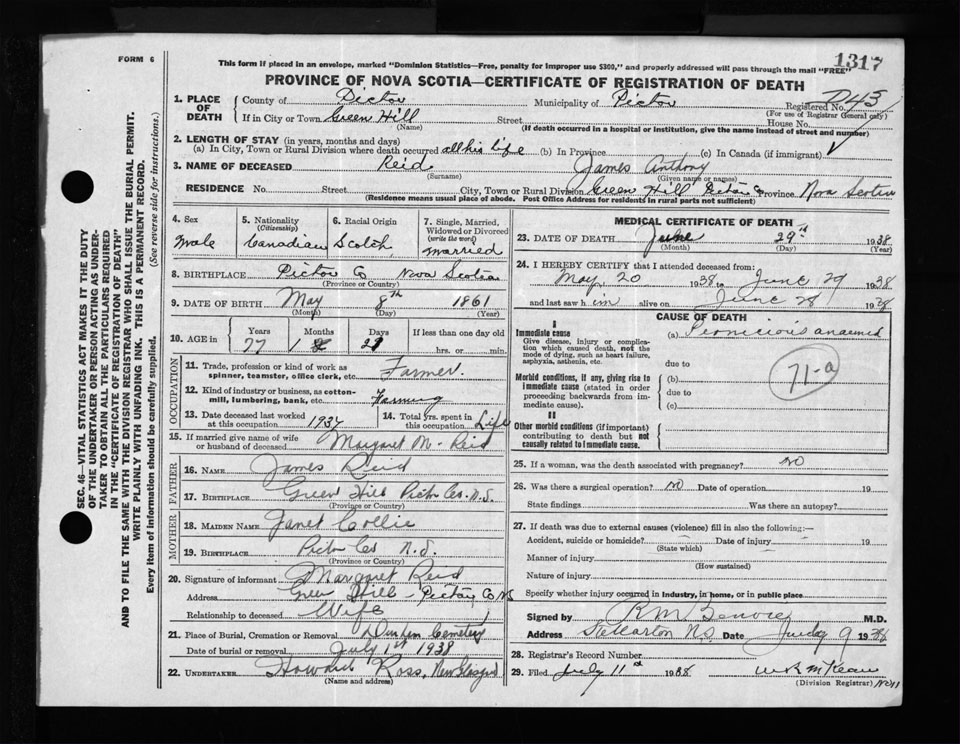 FORM 6
This form if placed in an envelope, marked "Dominion Statistics—Free, penalty for improper use $300," and properly addressed will pass through the mail "FREE"
1317
PROVINCE OF NOVA SCOTIA—CERTIFICATE OF REGISTRATION OF DEATH
1. PLACE OF DEATH
County of Pictou Municipality of Pictou Registered No. D43
(For use of Registrar General only)
If in City or Town Green Hill Street House No.
(Name) (If death occurred in a hospital or institution, give the name instead of street and number)
2. LENGTH OF STAY (in years, months and days)
(a) In City, Town or Rural Division where death occurred all his life (b) In Province (c) In Canada (if immigrant)
3. NAME OF DECEASED Reid James Anthony
(Surname) (Given name or names)
RESIDENCE No. Street City, Town or Rural Division Green Hill Pictou Co Province Nova Scotia
(Residence means usual place of abode. Post Office Address for residents in rural parts not sufficient)
4. Sex
male
5. Nationality
(Citizenship)
Canadian
6. Racial Origin
Scotch
7. Single, Married, Widowed or Divorced
(write the word)
Married
8. BIRTHPLACE Pictou Co Nova Scotia
(Province or Country)
9. DATE OF BIRTH May 8th 1861
(Month) (Day) (Year)
10. AGE in
Years Months Days If less than one day old
77 1 21 hrs. or min.
OCCUPATION
11. Trade, profession or kind of work as spinner, teamster, office clerk, etc. Farmer.
12. Kind of industry or business, as cotton-mill, lumbering, bank, etc. Farming
13. Date deceased last worked at this occupation 1937
14. Total yrs. spent in this occupation Life
15. If married give name of wife or husband of deceased Margaret M. Reid
FATHER
16. NAME James Reid
17. BIRTHPLACE Green Hill Pictou Co. N.S.
(Province or Country)
MOTHER
18. MAIDEN NAME Janet Collie
19. BIRTHPLACE Pictou Co N.S.
(Province or Country)
20. Signature of informant Margaret Reid
Address Green Hill Pictou Co NS
Relationship to deceased Wife
21. Place of Burial, Cremation or Removal Durham Cemetery
Date of burial or removal July 1st 1938
22. UNDERTAKER Howard Ross, New Glasgow
(Name and address)
MEDICAL CERTIFICATE OF DEATH
23. DATE OF DEATH June 29th 1938
(Month) (Day)
24. I HEREBY CERTIFY that I attended deceased from:
May 20 1938 to June 29 1938
and last saw him alive on June 28 1938
CAUSE OF DEATH
I
Immediate cause
Give disease, injury or complication which caused death, not the mode of dying, such as heart failure, asphyxia, asthenia, etc.
(a) Pernicious anaemia
due to
Morbid conditions, if any, giving rise to immediate cause (stated in order proceeding backwards from immediate cause).
(b)
due to
(c)
71-a
II
Other morbid conditions (if important) contributing to death but not causally related to immediate cause.
25. If a woman, was the death associated with pregnancy? NO
26. Was there a surgical operation? NO Date of operation 19
State findings Was there an autopsy?
27. If death was due to external causes (violence) fill in also the following:—
Accident, suicide or homicide? Date of injury 19
(State which)
Manner of injury
(How sustained)
Nature of injury
Specify whether injury occurred in industry, in home, or in public place
Signed by M.D.
Address Stellarton N.S. Date July 9 1938
28. Registrar's Record Number
29. Filed July 11 1938
(Division Registrar)
SEC. 46—VITAL STATISTICS ACT MAKES IT THE DUTY
OF THE UNDERTAKER OR PERSON ACTING AS UNDER-
TAKER TO OBTAIN ALL THE PARTICULARS REQUIRED
IN THE "CERTIFICATE OF REGISTRATION OF DEATH"
AND TO FILE THE SAME WITH THE DIVISION REGISTRAR WHO SHALL ISSUE THE BURIAL PERMIT.
WRITE PLAINLY WITH UNFADING INK. THIS IS A PERMANENT RECORD.
Every item of information should be carefully supplied. (See reverse side for instructions.)